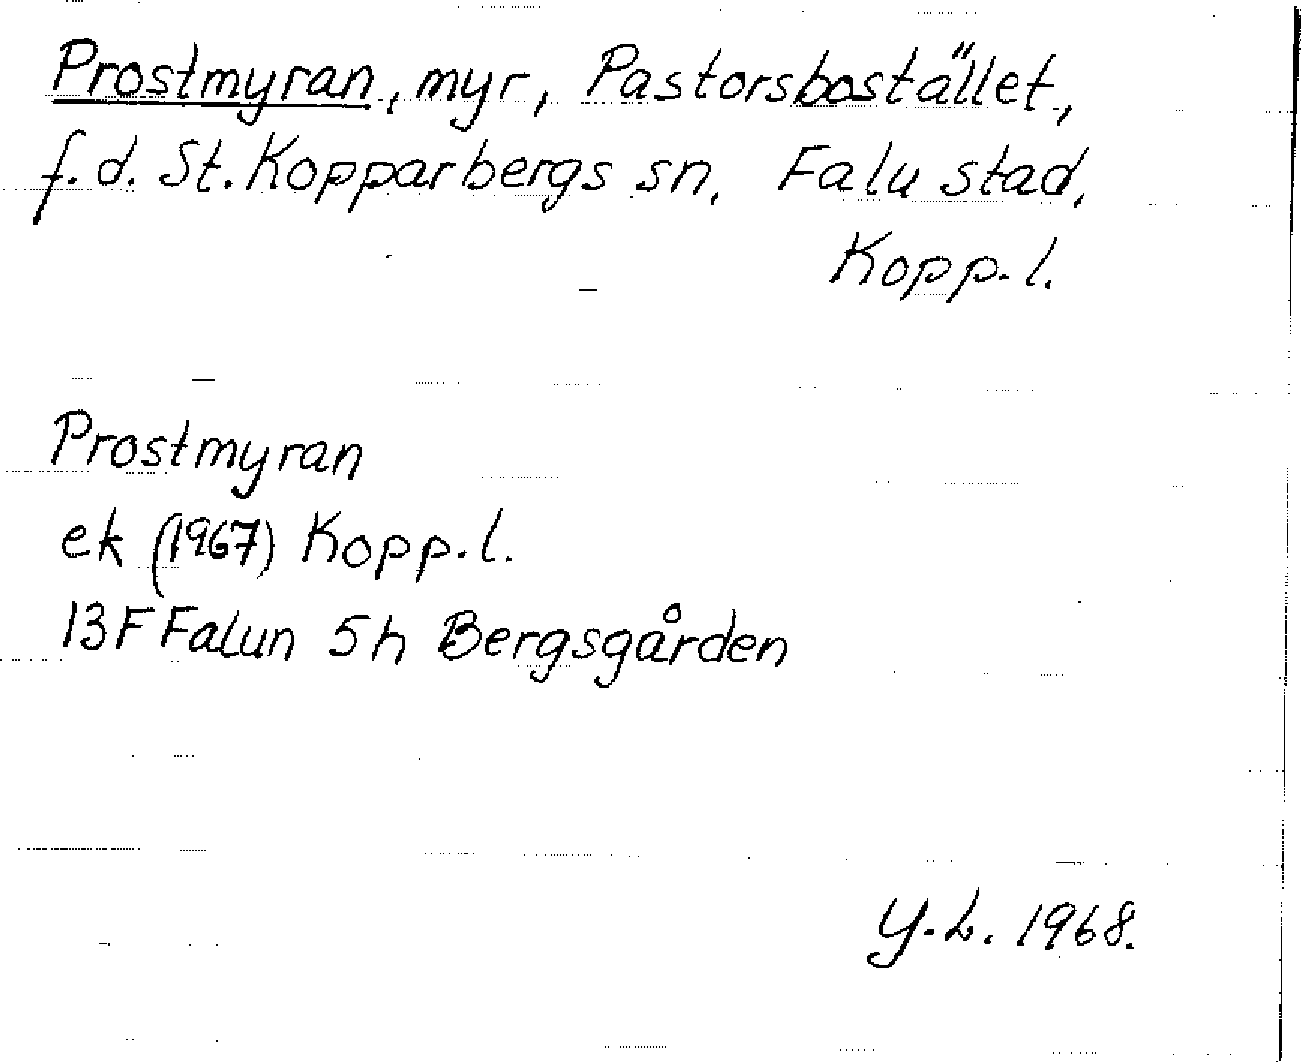 Prostmyran, myr, Pastorsbostället,
f.d. St. Kopparbergs sn, Falu stad,
Kopp. l.
Prostmyran
ek (1967) Kopp. l.
13F Falun 5h Bergsgården
Y.L. 1968.